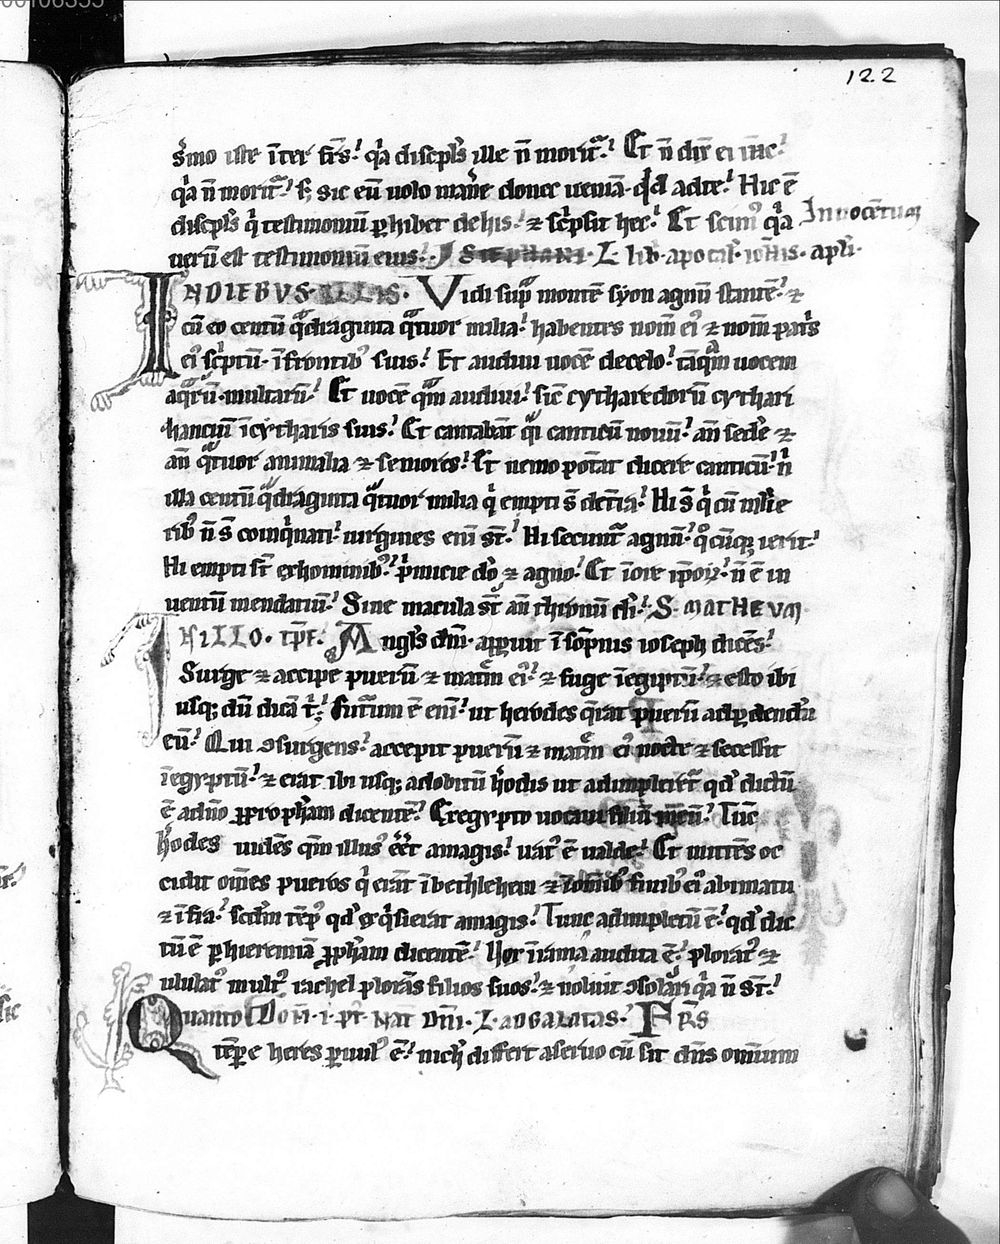 00106355
122
s̄mo iste īter fr̄s. q̄a discipl̄s ille n̄ morit᷑. Et n̄ dix̄ ei ih̄c.
q̄a n̄ morit᷑. S; sic eū uolo man̄e donec ueniā. q͛d ad te. Hic ē
discipl̄s q̄ testimoniū ꝑhibet de his. ⁊ sc̄psit hec. Et scim᷒ q̄a
Innocētum
uerū est testimoniū eius. Stephani. L. lib. apocal̄. ioh̄is. apl̄i.
IN DIEBVS ILLIS. Vidi sup̄ montē syon agnū stantē. ⁊
cū eo centū qͣdraginta qͣtuor milia. habentes nom̄ ei᷒ ⁊ nom̄ pat̄s
ei᷒ sc̄ptū. ī frontib᷒ suis. Et audiui uocē de celo. tāqͣm uocem
aq͛rū. multarū. Et uocē qͣm audiui. sic̄ cytharedorū cythari
zantiū ī cytharis suis. Et cantabāt qͣi canticū nouū. an̄ sedē ⁊
an̄ qͣtuor animalia ⁊ seniores. Et nemo pot̄at dicere canticū. n̄
illa centū qͣdraginta qͣtuor milia q̄ empti s̄ de t̄ra. Hi s̄ q̄ cū mlīe
rib᷒ n̄ s̄ coinq̄nati. uirgines eni s̄t. Hi secunt᷑ agnū. q°cūq; ierit.
Hi empti s̄t ex hominib᷒. p̄micie dō ⁊ agno. Et ī ore ip̄oꝝ. n̄ ē in
uentū mendatiū. Sine macula s̄t an̄ thronū d̄i. S. MATHEUM
IN ILLO. TP̄R. Angl̄s dn̄i. apparuit ī sōpnis ioseph dicēs.
Surge ⁊ accipe puerū ⁊ mat̄m ei᷒. ⁊ fuge ī egiptū. ⁊ esto ibi
usq; dū dicā t̄. Futurum ē eni. ut herodes q̄rat puerū ad ꝑdendū
eū. Qui ꝯsurgens. accepit puerū ⁊ mat̄m ei᷒ nocte ⁊ secessit
ī egyptū. ⁊ erat ibi usq; ad obitū h̄odis ut adimpleret᷑ qd̄ dictū
ē a dn̄o ꝑ proph̄am dicentē. Ex egypto uocaui filiū meū. Tūc
h̄odes uidēs q̄m illus᷒ eēt a magis. irat᷒ ē ualde. Et mittēs oc
cidit om̄es pueros q̄ erāt ī bethlehem ⁊ ī om̄ib᷒ finib᷒ ei᷒ a bimatu
⁊ īfra. scd̄m tēp᷒ qd̄ ex q̄sierat a magis. Tunc adimpletū ē. qd̄ dic
tū ē ꝑ hieremiā ꝓph̄am dicentē. Uox ī rama audita ē. plorat᷒ ⁊
ululat᷒ mult᷒. rachel plorās filios suos. ⁊ noluit ꝯsolari q̄a n̄ s̄t.
DOM̄. I. P̄t. NAT. DN̄I. L. AD GALATAS. FRS̄
Quanto tēꝑe heres paruul᷒ ē. nich̄ differt a seruo cū sit dn̄s omnium